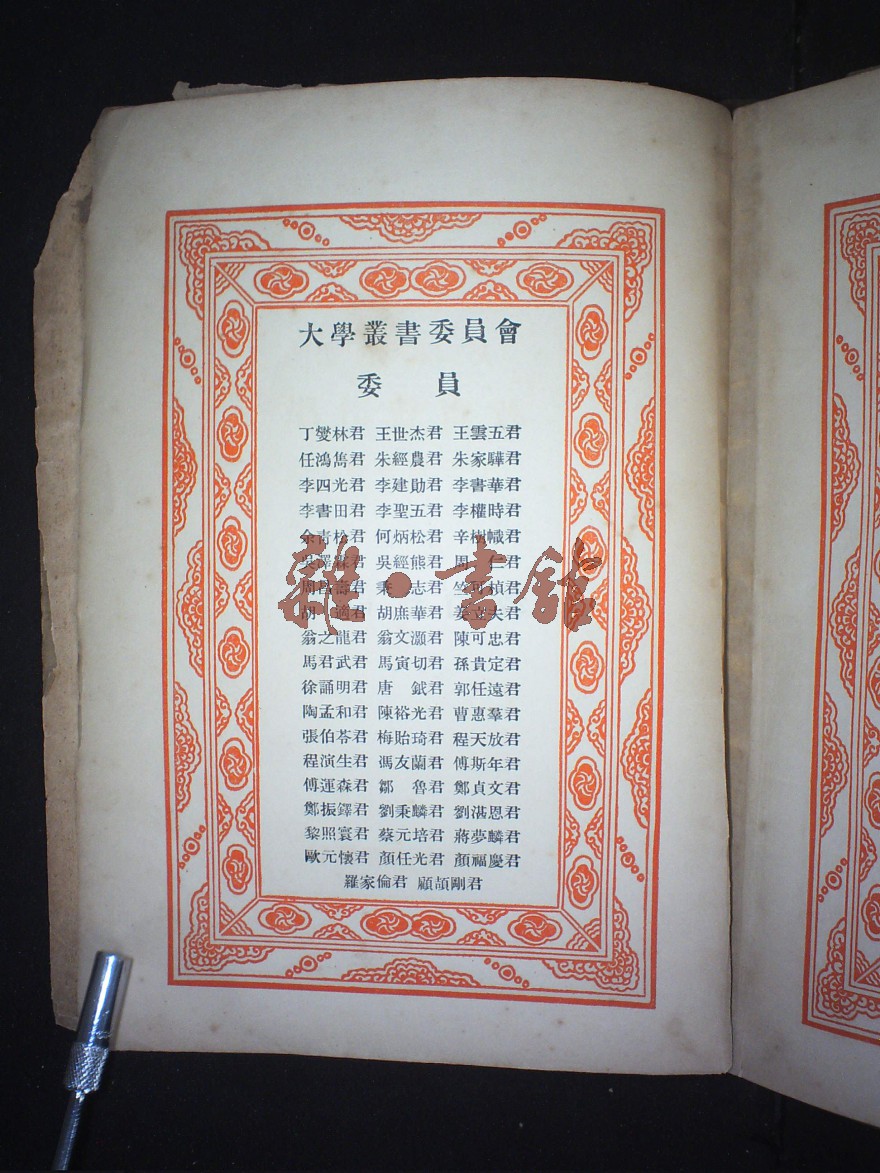 大學叢書委員會
委 員
丁燮林君 王世杰君 王雲五君
任鴻雋君 朱經農君 朱家驊君
李四光君 李建勛君 李書華君
李書田君 李聖五君 李權時君
余青松君 何炳松君 辛樹幟君
吳澤霖君 吳經熊君 周 仁君
周昌壽君 秉 志君 竺可楨君
胡 適君 胡庶華君 姜立夫君
翁之龍君 翁文灝君 陳可忠君
馬君武君 馬寅初君 孫貴定君
徐誦明君 唐 鉞君 郭任遠君
陶孟和君 陳裕光君 曹惠羣君
張伯苓君 梅貽琦君 程天放君
程演生君 馮友蘭君 傅斯年君
傅運森君 鄒 魯君 鄭貞文君
鄭振鐸君 劉秉麟君 劉湛恩君
黎照寰君 蔡元培君 蔣夢麟君
歐元懷君 顏任光君 顏福慶君
羅家倫君 顧頡剛君
雜·書館